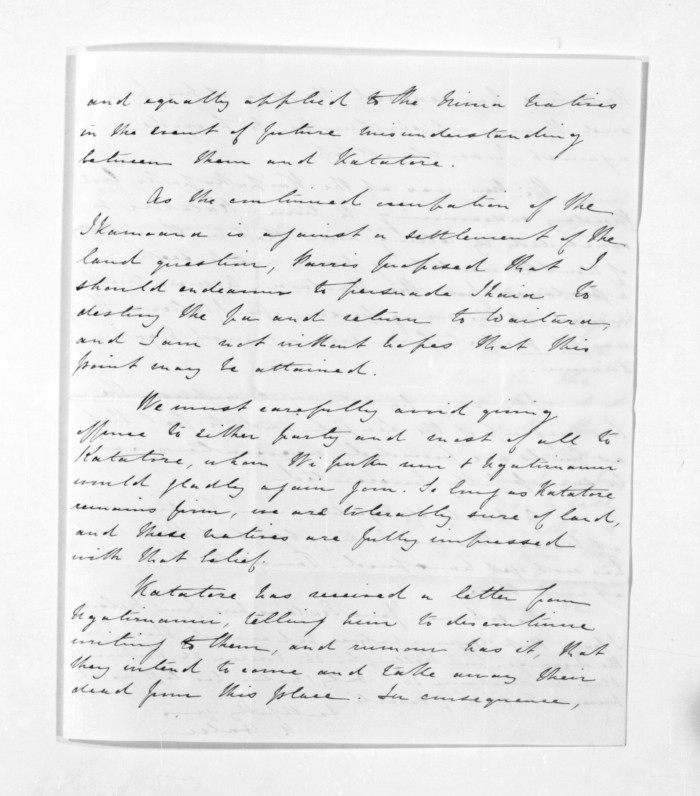 and equally applied to the Ninia Natives
in the event of future misunderstanding
between them and Katatore.
As the continued occupation of the
Ikamoana is against a settlement of the
land question, Parris proposed that I
should endeavour to persuade Ihaia to
destroy the pa and return to Waitara,
and I am not without hopes that this
point may be attained.
We must carefully avoid giving
offence to either party and most of all to
Katatore, whom Wi and Ngatiruanui
would gladly again join. So long as Katatore
remains firm, we are tolerably sure of land,
and these natives are fully impressed
with that belief.
Katatore has received a letter from
Ngatiruanui, telling him to discontinue
writing to them, and rumour has it, that
they intend to come and take away their
dead from this place. In consequence,